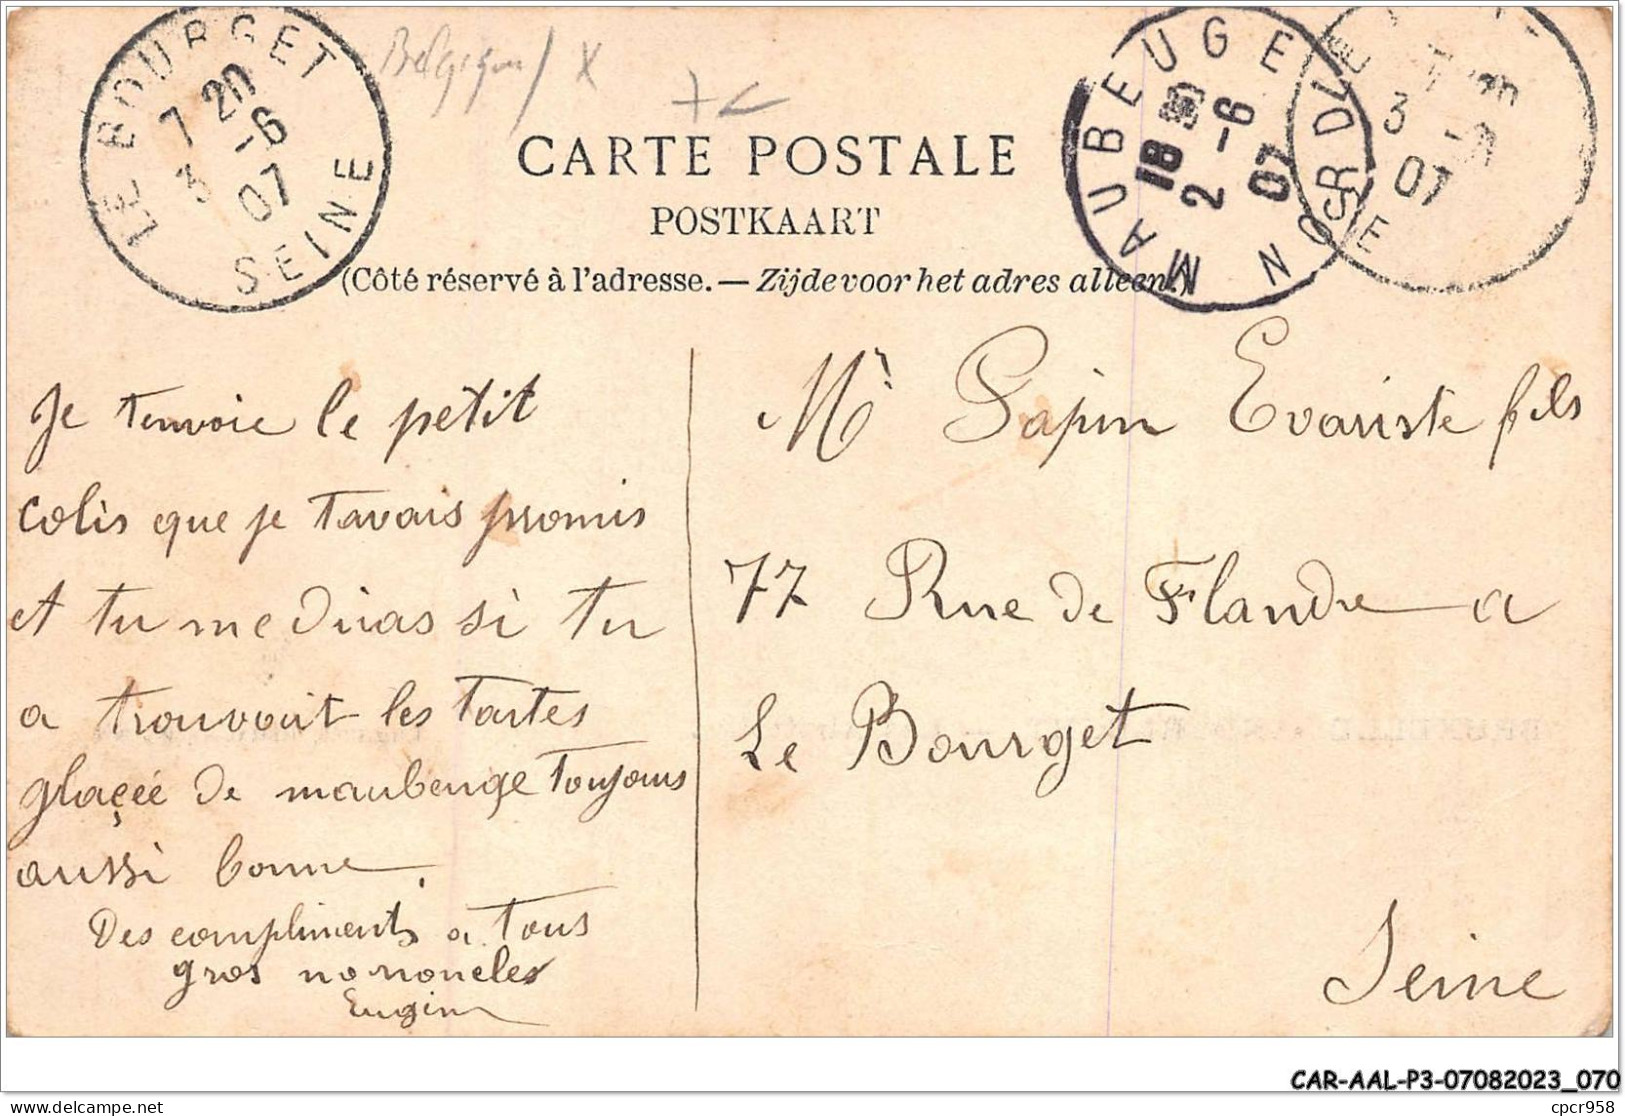 LE BOURGET
7 20
3 -6
07
SEINE
Belgique / X
MAUBEUGE
18
2 -6
07
NORD
3
07
CARTE POSTALE
POSTKAART
(Côté réservé à l'adresse. — Zijde voor het adres alleen.)
Je tenvoie le petit
colis que je tavais promis
et tu me diras si tu
a trouvait les tartes
glaçée de maubeuge toujours
aussi bonne.
Des compliments a tous
gros
Mr Sapin Evariste fils
77 Rue de Flandre a
Le Bourget
Seine
CAR-AAL-P3-07082023_070
delcampe.net
cpcr958